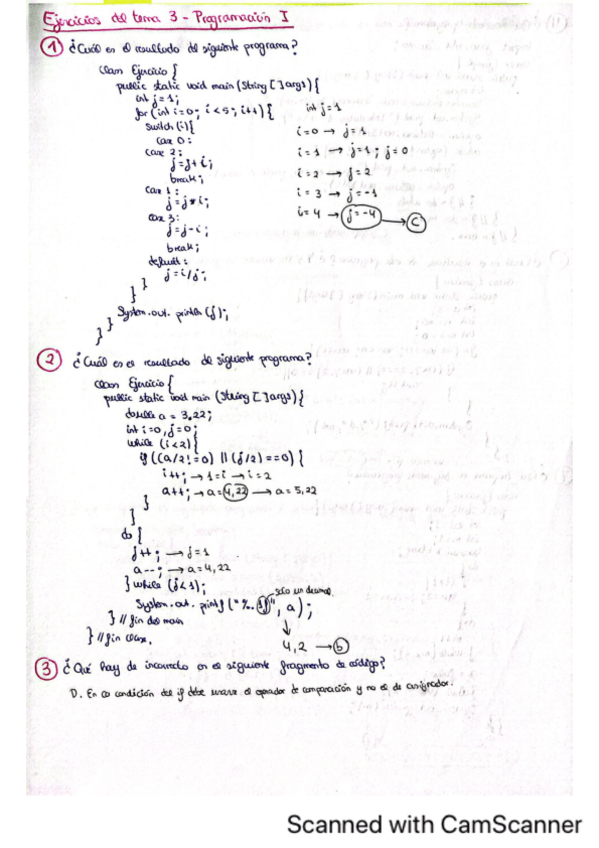 Ejercicios del tema 3 - Programación I
1 ¿Cuál es el resultado del siguiente programa?
class Ejercicio {
public static void main (String [] args) {
int j = 1;
for (int i=0; i<5; i++) {
switch (i) {
case 0:
case 2:
j=j+i;
break;
case 1:
j=j*i;
case 3:
j=j-i;
break;
default:
j=i/j;
}
}
System.out.println (j);
}
}
int j=1
i=0 → j=1
i=1 → j=1; j=0
i=2 → j=2
i=3 → j=-1
i=4 → j=-4 → C
2 ¿Cuál es el resultado del siguiente programa?
class Ejercicio {
public static void main (String [] args) {
double a = 3.22;
int i=0, j=0;
while (i<2) {
if ((a/2!=0) || (j/2)==0) {
i++; → 1=i → i=2
a++; → a=4,22 → a=5,22
}
}
do {
j++; → j=1
a--; → a=4,22
} while (j<1);
sólo un decimal
System.out.printf ("%.1f", a);
} // fin del main
} // fin class.
4,2 → b
3 ¿Qué hay de incorrecto en el siguiente fragmento de código?
D. En la condición del if debe usarse el operador de comparación y no el de asignador.
Scanned with CamScanner